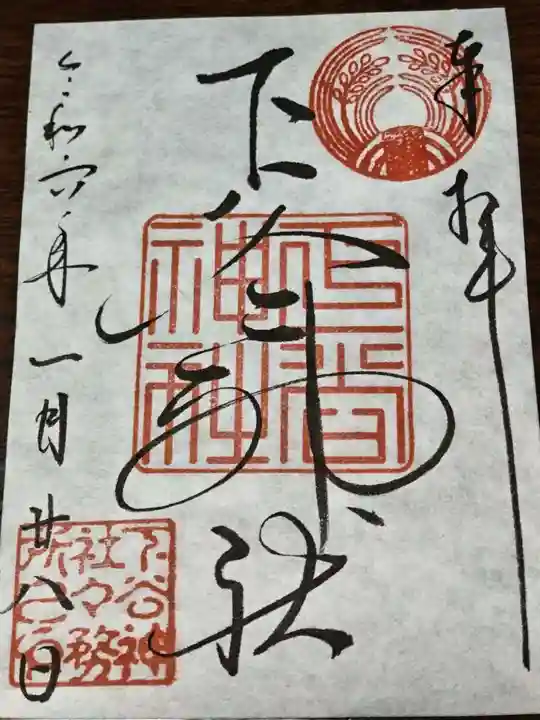 奉拝
下谷神社
下谷神社
令和六年一月廿八日
下谷神
社々務
所之印